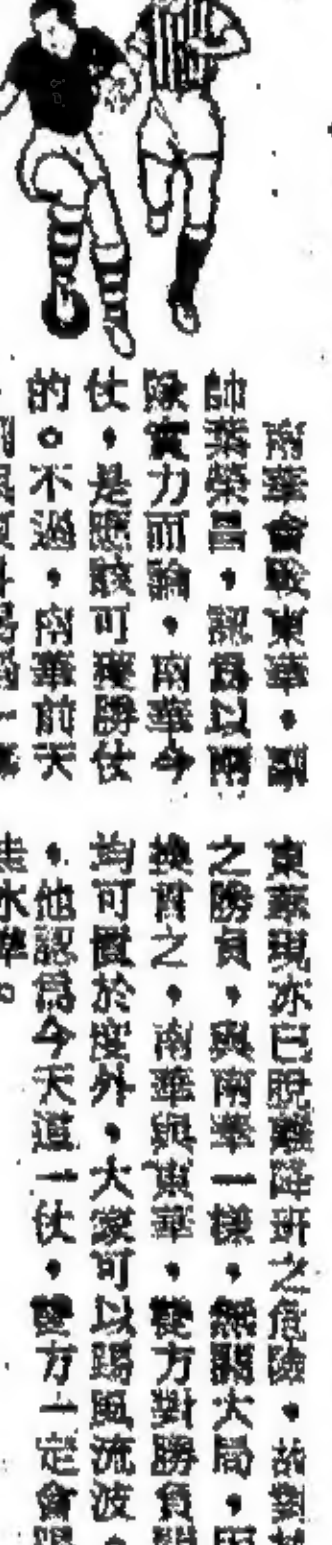 南華會戰東華，副
帥葉榮昌，認為以兩
隊實力而論，南華今
仗，是應該可獲勝仗
的。不過，南華前天
東華現亦已脫離降班之危險，故對
之勝負，與南華一樣，無關大局，
換言之，南華與東華，雙方對勝負
均可置於度外，大家可以踢風流波，
他認為今天這一仗，雙方一定會
佳水準。